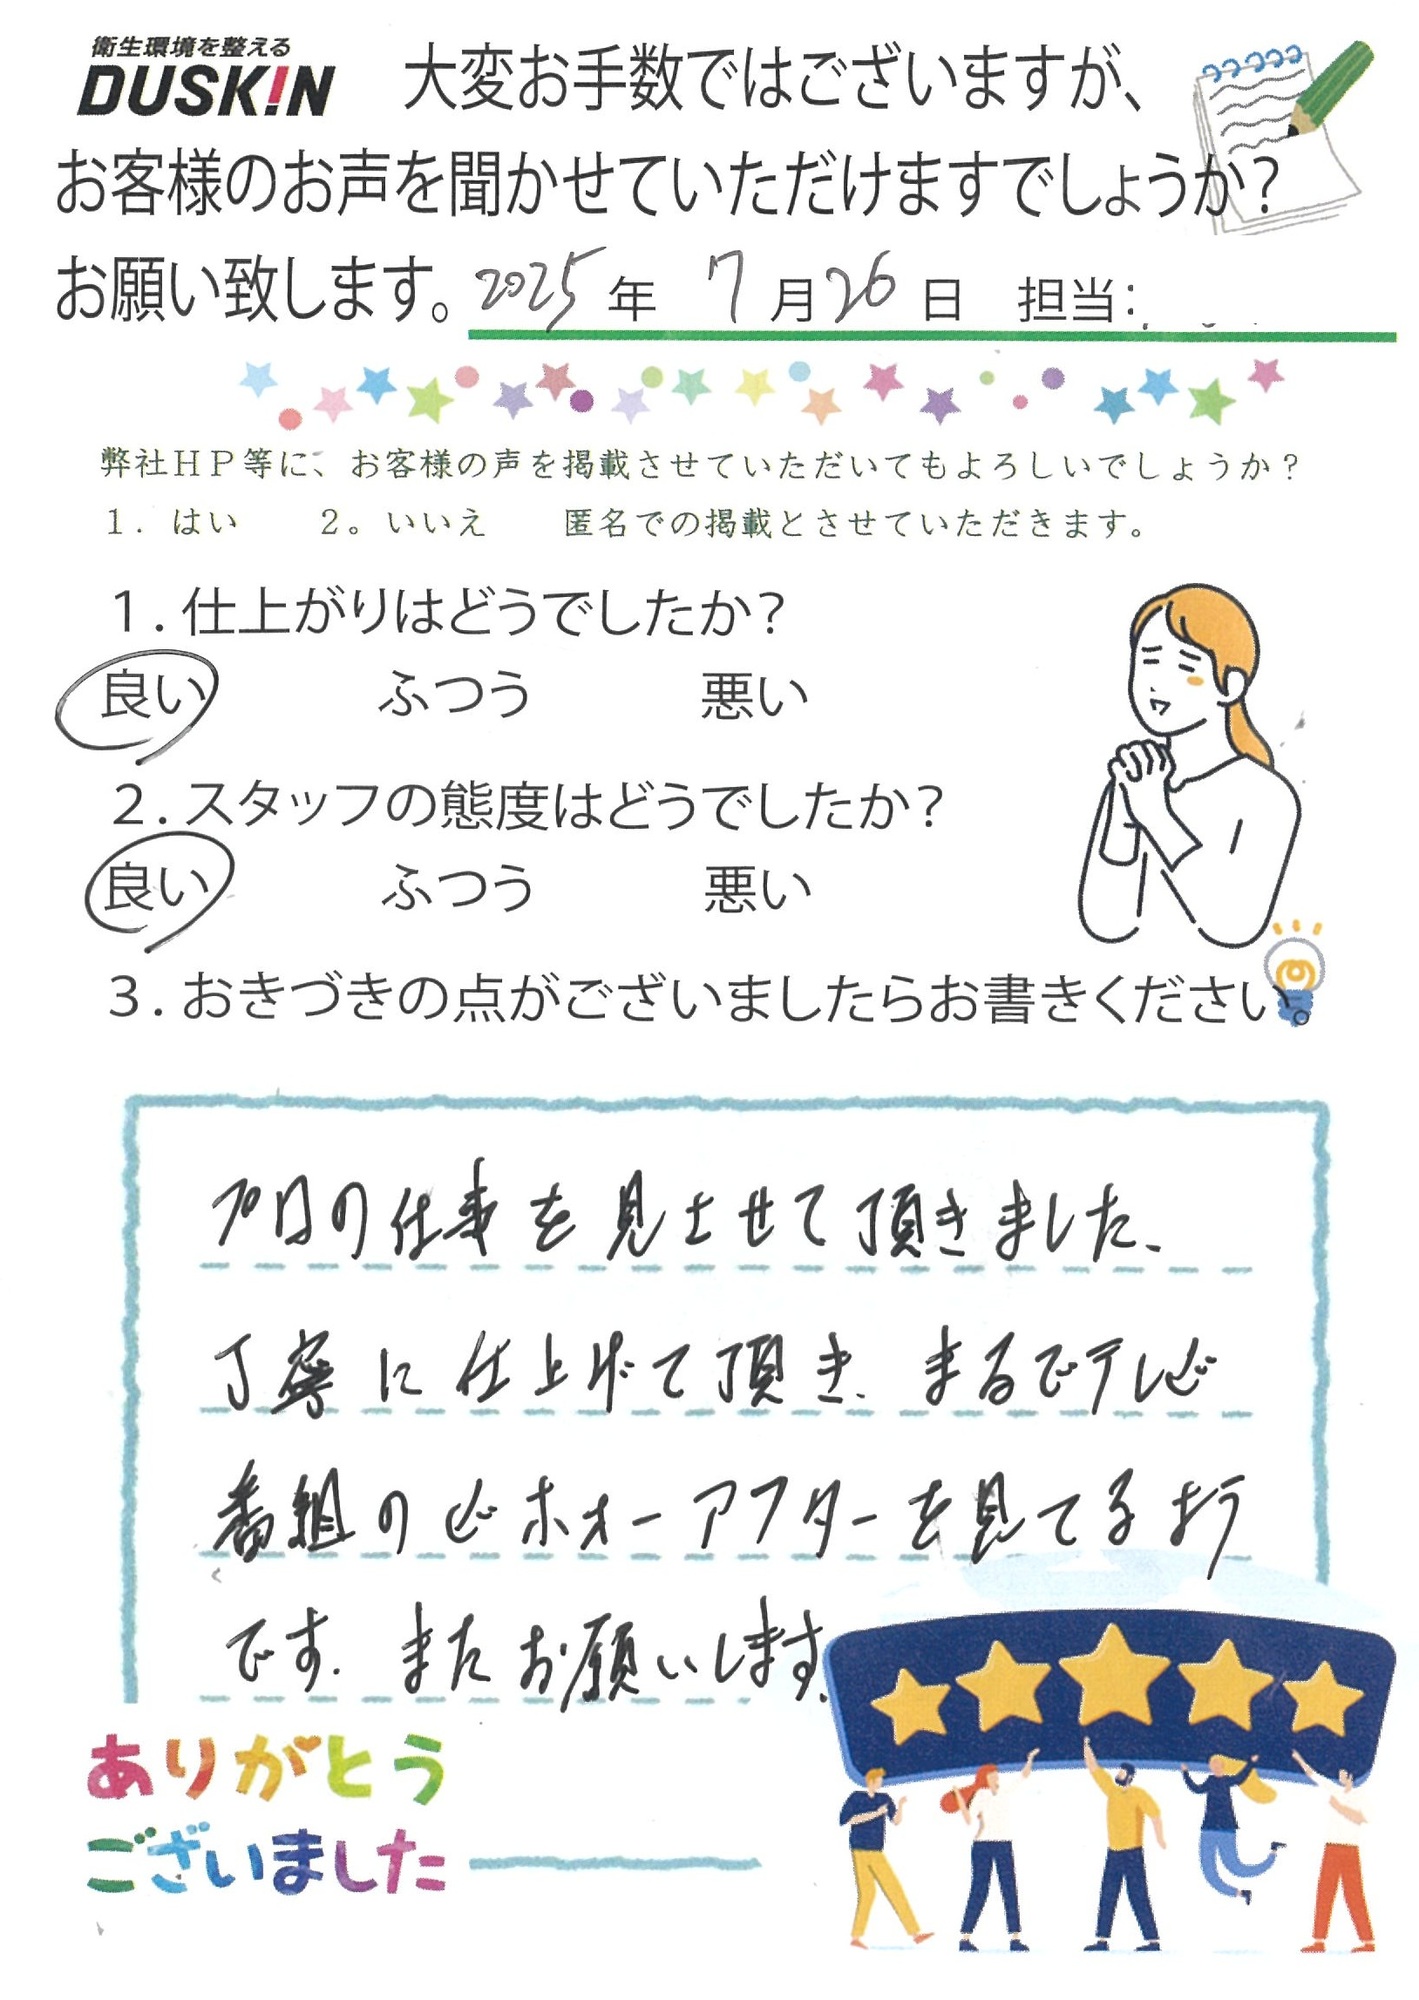 衛生環境を整える
DUSKIN
大変お手数ではございますが、
お客様のお声を聞かせていただけますでしょうか？
お願い致します。2025年 7月26日 担当:
弊社HP等に、お客様の声を掲載させていただいてもよろしいでしょうか？
１．はい　２。いいえ　匿名での掲載とさせていただきます。
１．仕上がりはどうでしたか？
良い　ふつう　悪い
２．スタッフの態度はどうでしたか？
良い　ふつう　悪い
３．おきづきの点がございましたらお書きください。
プロの仕事を見させて頂きました、
丁寧に仕上げて頂き、まるでテレビ
番組のビホォーアフターを見てるよう
です。またお願いします。
ありがとう
ございました